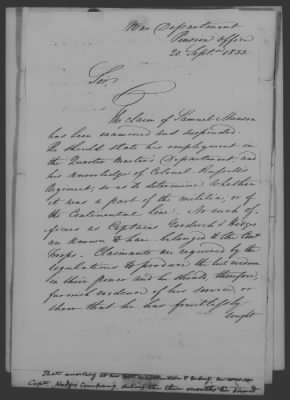 War Department
Pension Office
20 Sept. 1833
Sir,
The claim of Samuel Munson
has been examined and suspended.
He should state his employment in
the Quarter Master's Department and
his knowledge of Colonel Russell's
Regiment, so as to determine whether
it was a part of the militia, or of
the Continental line. No such of-
ficers as Captains Goodrich & Hodges
are known to have belonged to the Cont
troops. Claimants are required by the
regulations to produce the best evidence
in their power and he should, therefore,
furnish evidence of his service, or
show that he has fruitlessly
sought
That according to his best recollection & belief, he
Capt. Hodges Company during the three months he